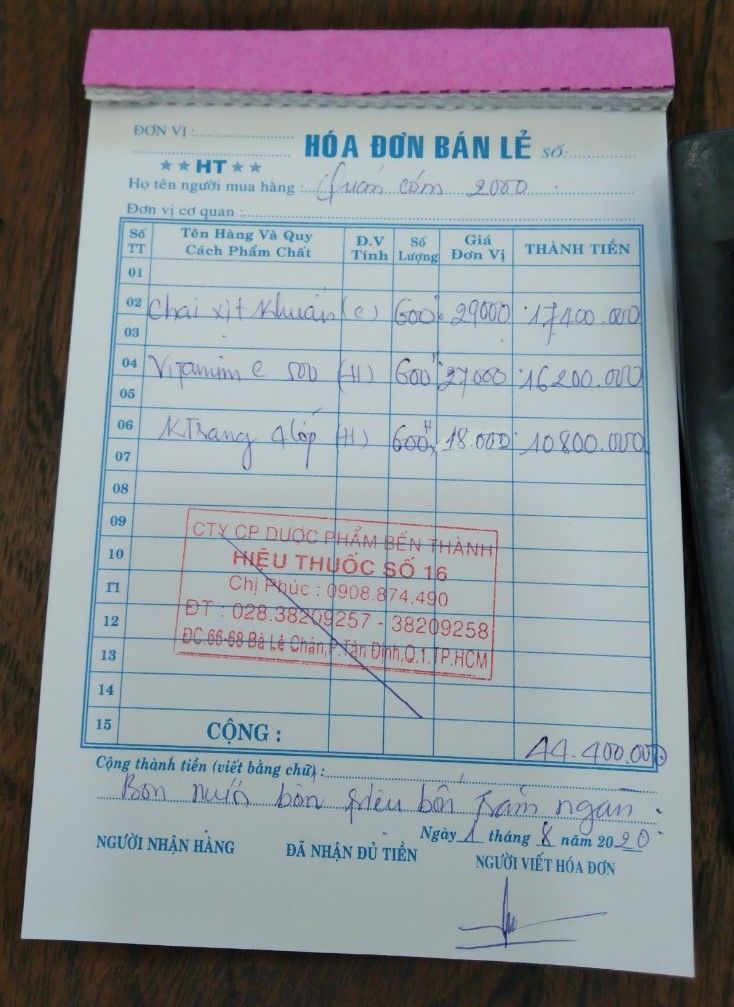 ĐƠN VỊ : HÓA ĐƠN BÁN LẺ SỐ:
★★HT★★
Họ tên người mua hàng : Quán cơm 2000
Đơn vị cơ quan :
Số TT Tên Hàng Và Quy Cách Phẩm Chất Đ.V Tính Số Lượng Giá Đơn Vị THÀNH TIỀN
01
02 Chai xịt khuẩn (c) 600 29000 17400.000
03
04 Vitamim e 500 (H) 600 27000 16200.000
05
06 K.Trang 4 lớp (H) 600 18.000 10800.000
07
08
09
10
11
12
13
14
15 CỘNG : 44.400.000
CTY CP DƯỢC PHẨM BẾN THÀNH
HIỆU THUỐC SỐ 16
Chị Phúc : 0908.874.490
ĐT : 028.38209257 - 38209258
ĐC:66-68 Bà Lê Chân,P.Tân Định,Q.1.TP.HCM
Cộng thành tiền (viết bằng chữ) :
Bốn mươi bốn triệu bốn trăm ngàn.
Ngày 1 tháng 8 năm 2020
NGƯỜI NHẬN HÀNG ĐÃ NHẬN ĐỦ TIỀN NGƯỜI VIẾT HÓA ĐƠN